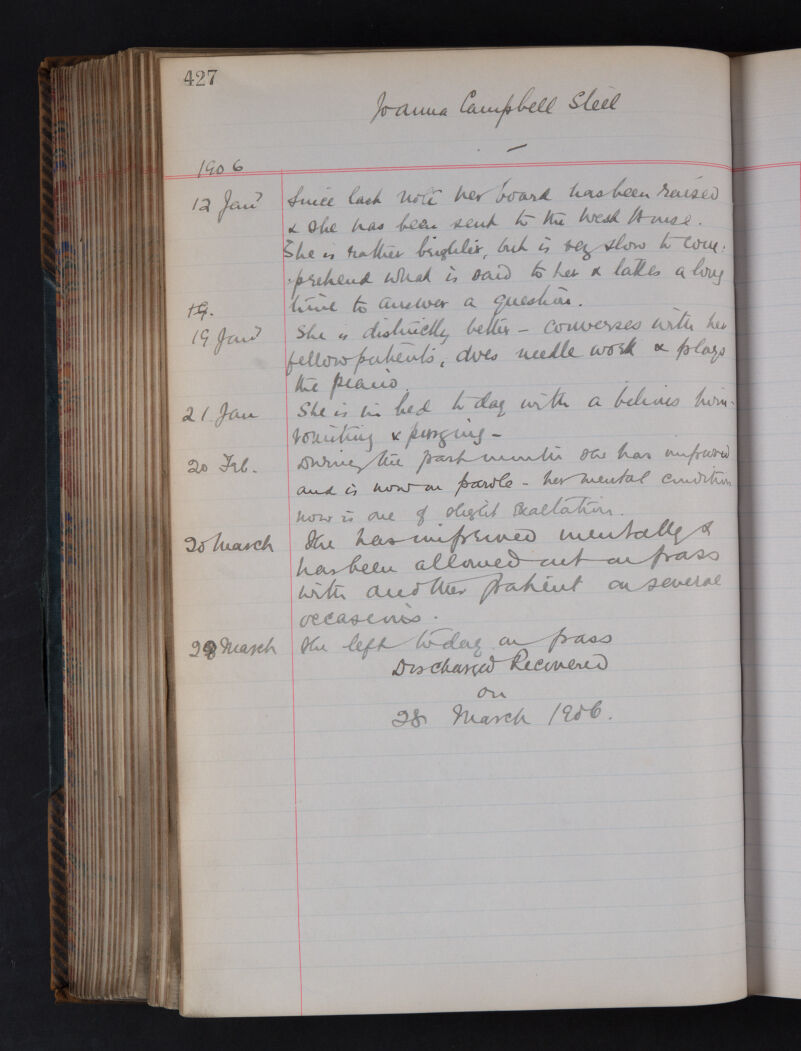 427
Joanna Campbell Steel
1906
12 Jany Since last note her board has been raised
& she has been sent to the West House.
She is rather brighter, but is very slow to com-
-prehend what is said to her & takes a long
19. time to answer a question.
19 Jany She is distinctly better - converses with her
fellow patients, does needle work & plays
the piano.
21 Jan She is in bed to day with a bilious turn -
vomiting & purging -
20 Feb. During the past month she has improved
and is now on parole - her mental condition
now is one of slight exaltation.
20 March She has improved mentally &
has been allowed out on pass
with another patient on several
occasions.
28 March She left to-day on pass
Discharged Recovered
on
28 March 1906.